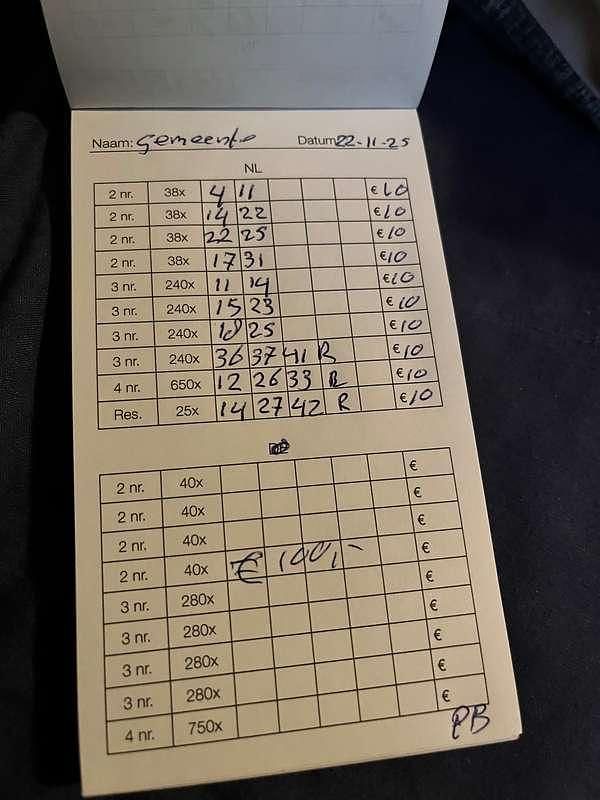 Naam: Gemeente Datum 22-11-25
NL
2 nr. 38x 4 11 € 10
2 nr. 38x 14 22 € 10
2 nr. 38x 22 25 € 10
2 nr. 38x 17 31 € 10
3 nr. 240x 11 14 € 10
3 nr. 240x 15 23 € 10
3 nr. 240x 18 25 € 10
3 nr. 240x 36 37 41 R € 10
4 nr. 650x 12 26 33 R € 10
Res. 25x 14 27 42 R € 10
2 nr. 40x €
2 nr. 40x €
2 nr. 40x €
2 nr. 40x € 100,- €
3 nr. 280x €
3 nr. 280x €
3 nr. 280x €
3 nr. 280x €
4 nr. 750x €
PB